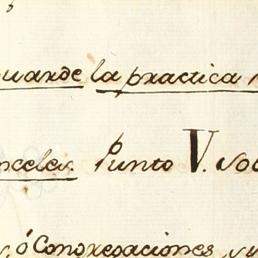 guarde la practica
nceles. Punto V. so
s, ó Congregaciones, y